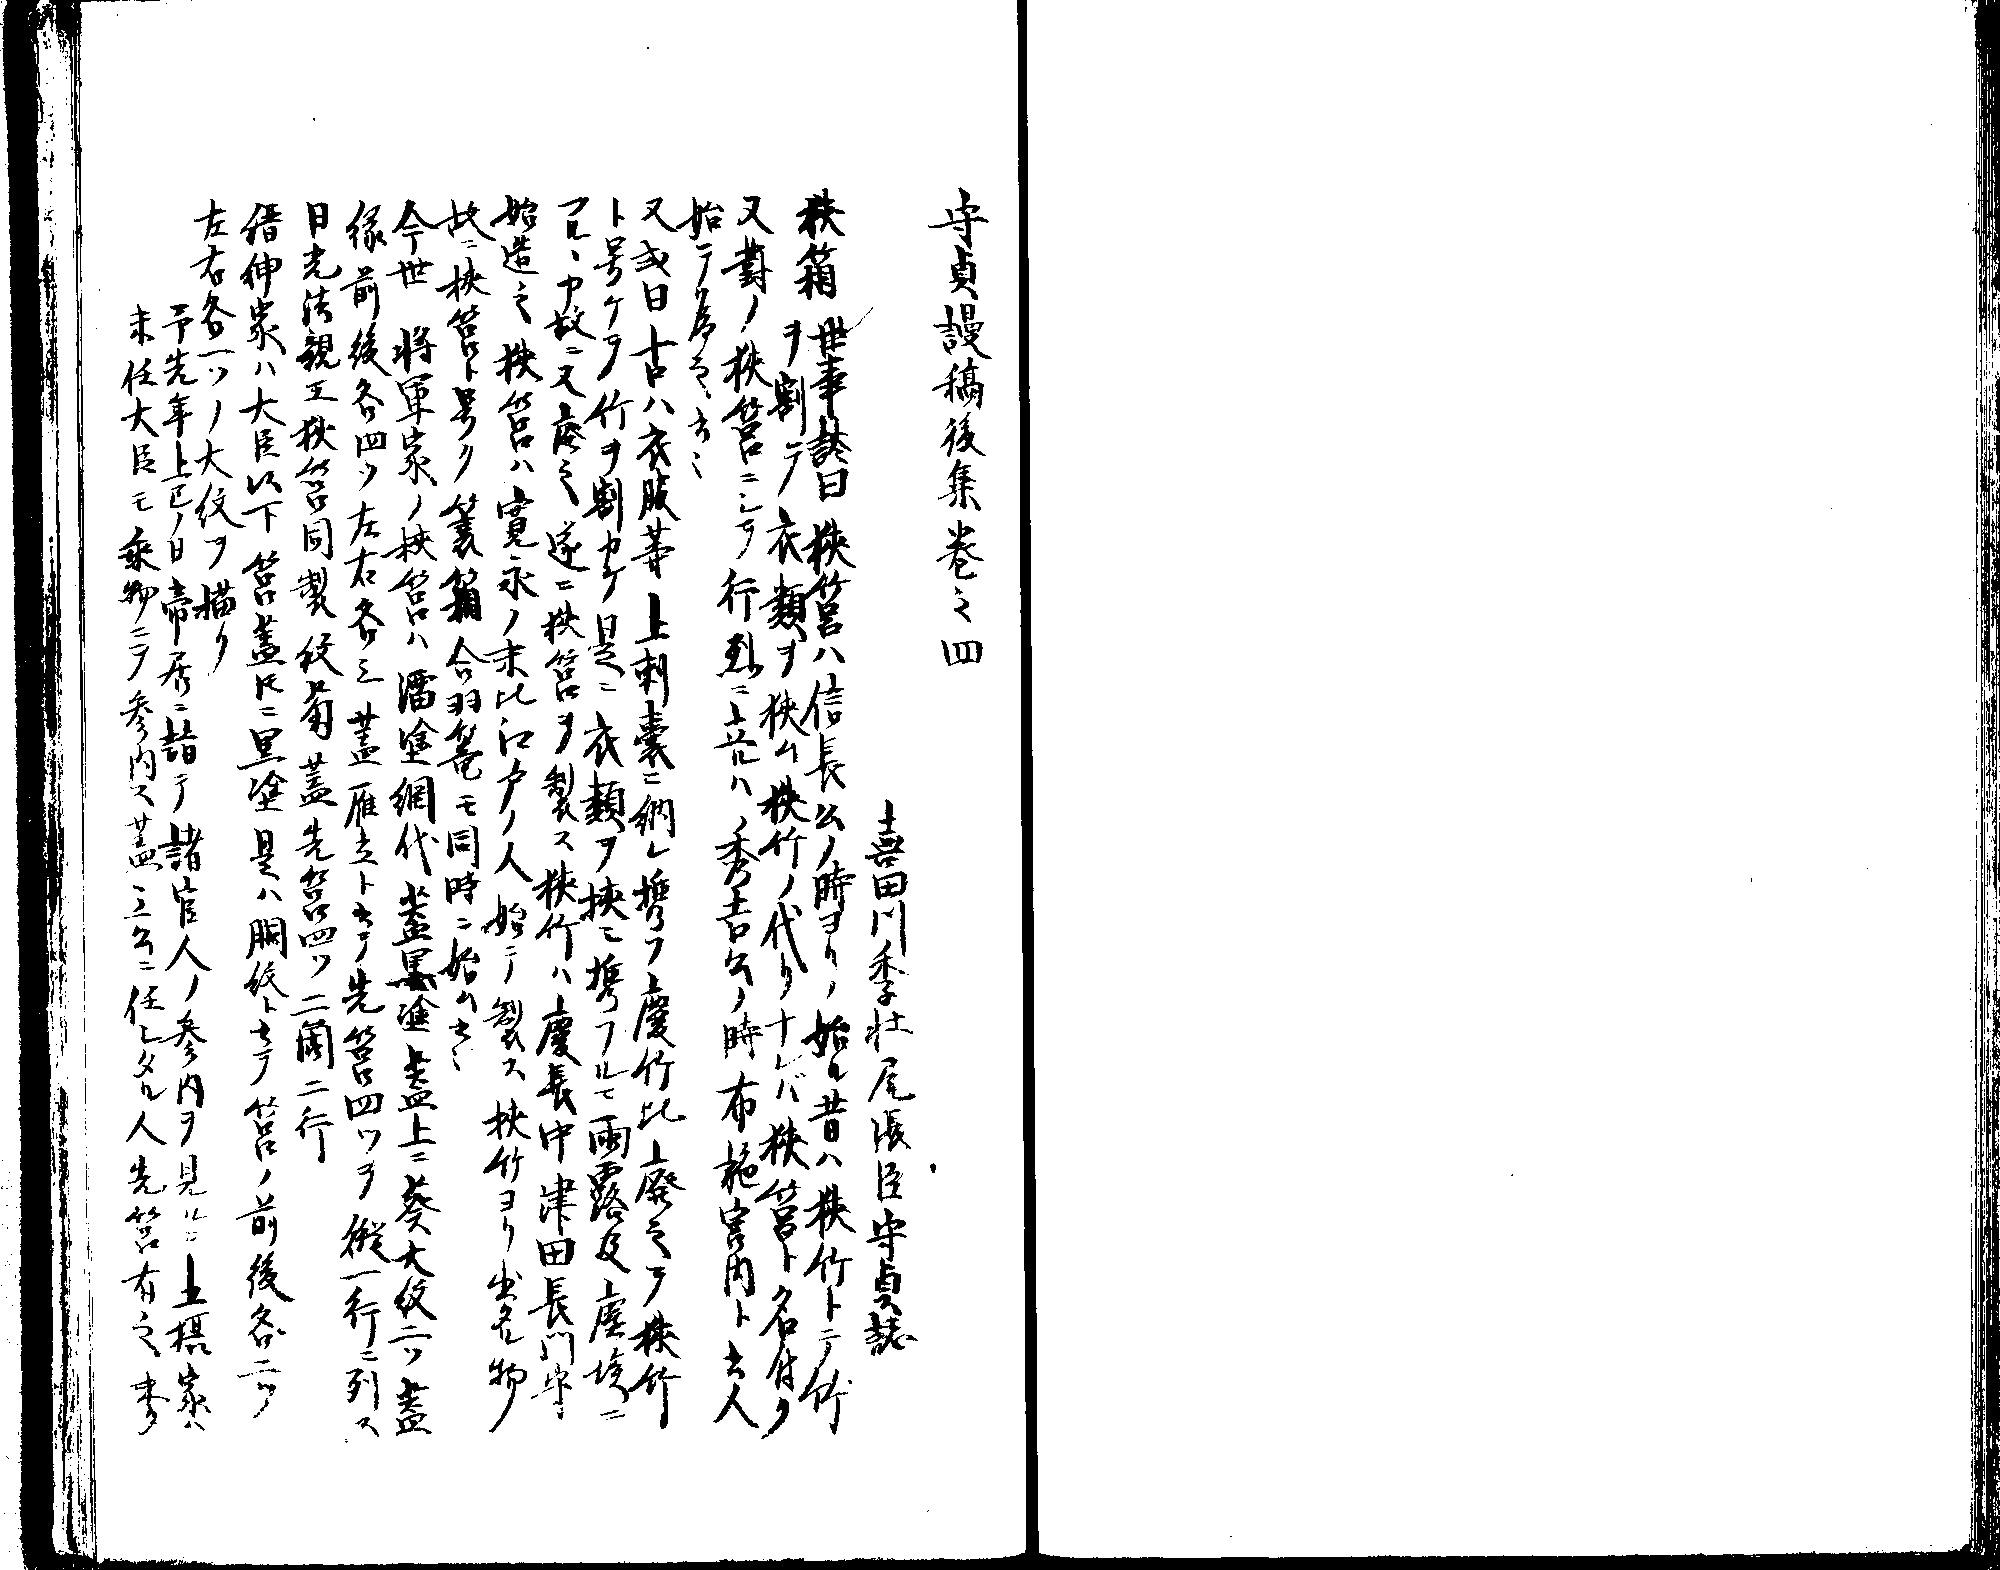 守貞謾稿後集巻之四
喜田川季荘尾張臣守貞誌
狭箱 世事談曰狭筥ハ信長公ノ時ヨリノ始ル昔ハ狭竹トテ竹
ヲ割テ衣類ヲ狭ム狭竹ノ代リナレバ狭筥ト名付ク
又對ノ狭筥ニシテ行烈ニ立ルハ秀吉公ノ時布施宮内ト云人
始テ之云々
又或曰古ハ衣服等上刺嚢ニ納レ携フ慶竹比上廃之テ狭竹
ト号ケテ竹ヲ割カケ是ニ衣類ヲ挟ミ携フルモ雨露及塵埃ニ
フルヽ故ニ又廃之遂ニ狭筥ヲ製ス狭竹ハ慶長中津田長門守
始造之狭筥ハ寛永ノ末比江戸ノ人始テ製ス狭竹ヨリ出タル物
故ニ挟筥ト号ク簑箱合羽篭モ同時ニ始ム云々
今世 将軍家ノ挟筥ハ溜塗網代蓋黒塗蓋上ニ葵大紋二ツ蓋
縁前後各四ツ左右各三蓋雁立ト云テ先筥四ツヲ縦一行ニ列ス
日光法親王狭筥同製紋菊蓋先筥四ツ二行
縉紳家ハ大臣以下筥蓋トモニ黒塗是ハ胴紋ト云テ筥ノ前後各二ツ
左右各一ツノ大紋ヲ描ク
予先年上巳ノ日帝居ニ詣テ諸官人ノ参内ヲ見ルニ五摂家ハ
未任大臣モ乗物ニテ参内ス蓋三公ニ任シタル人先筥有之未